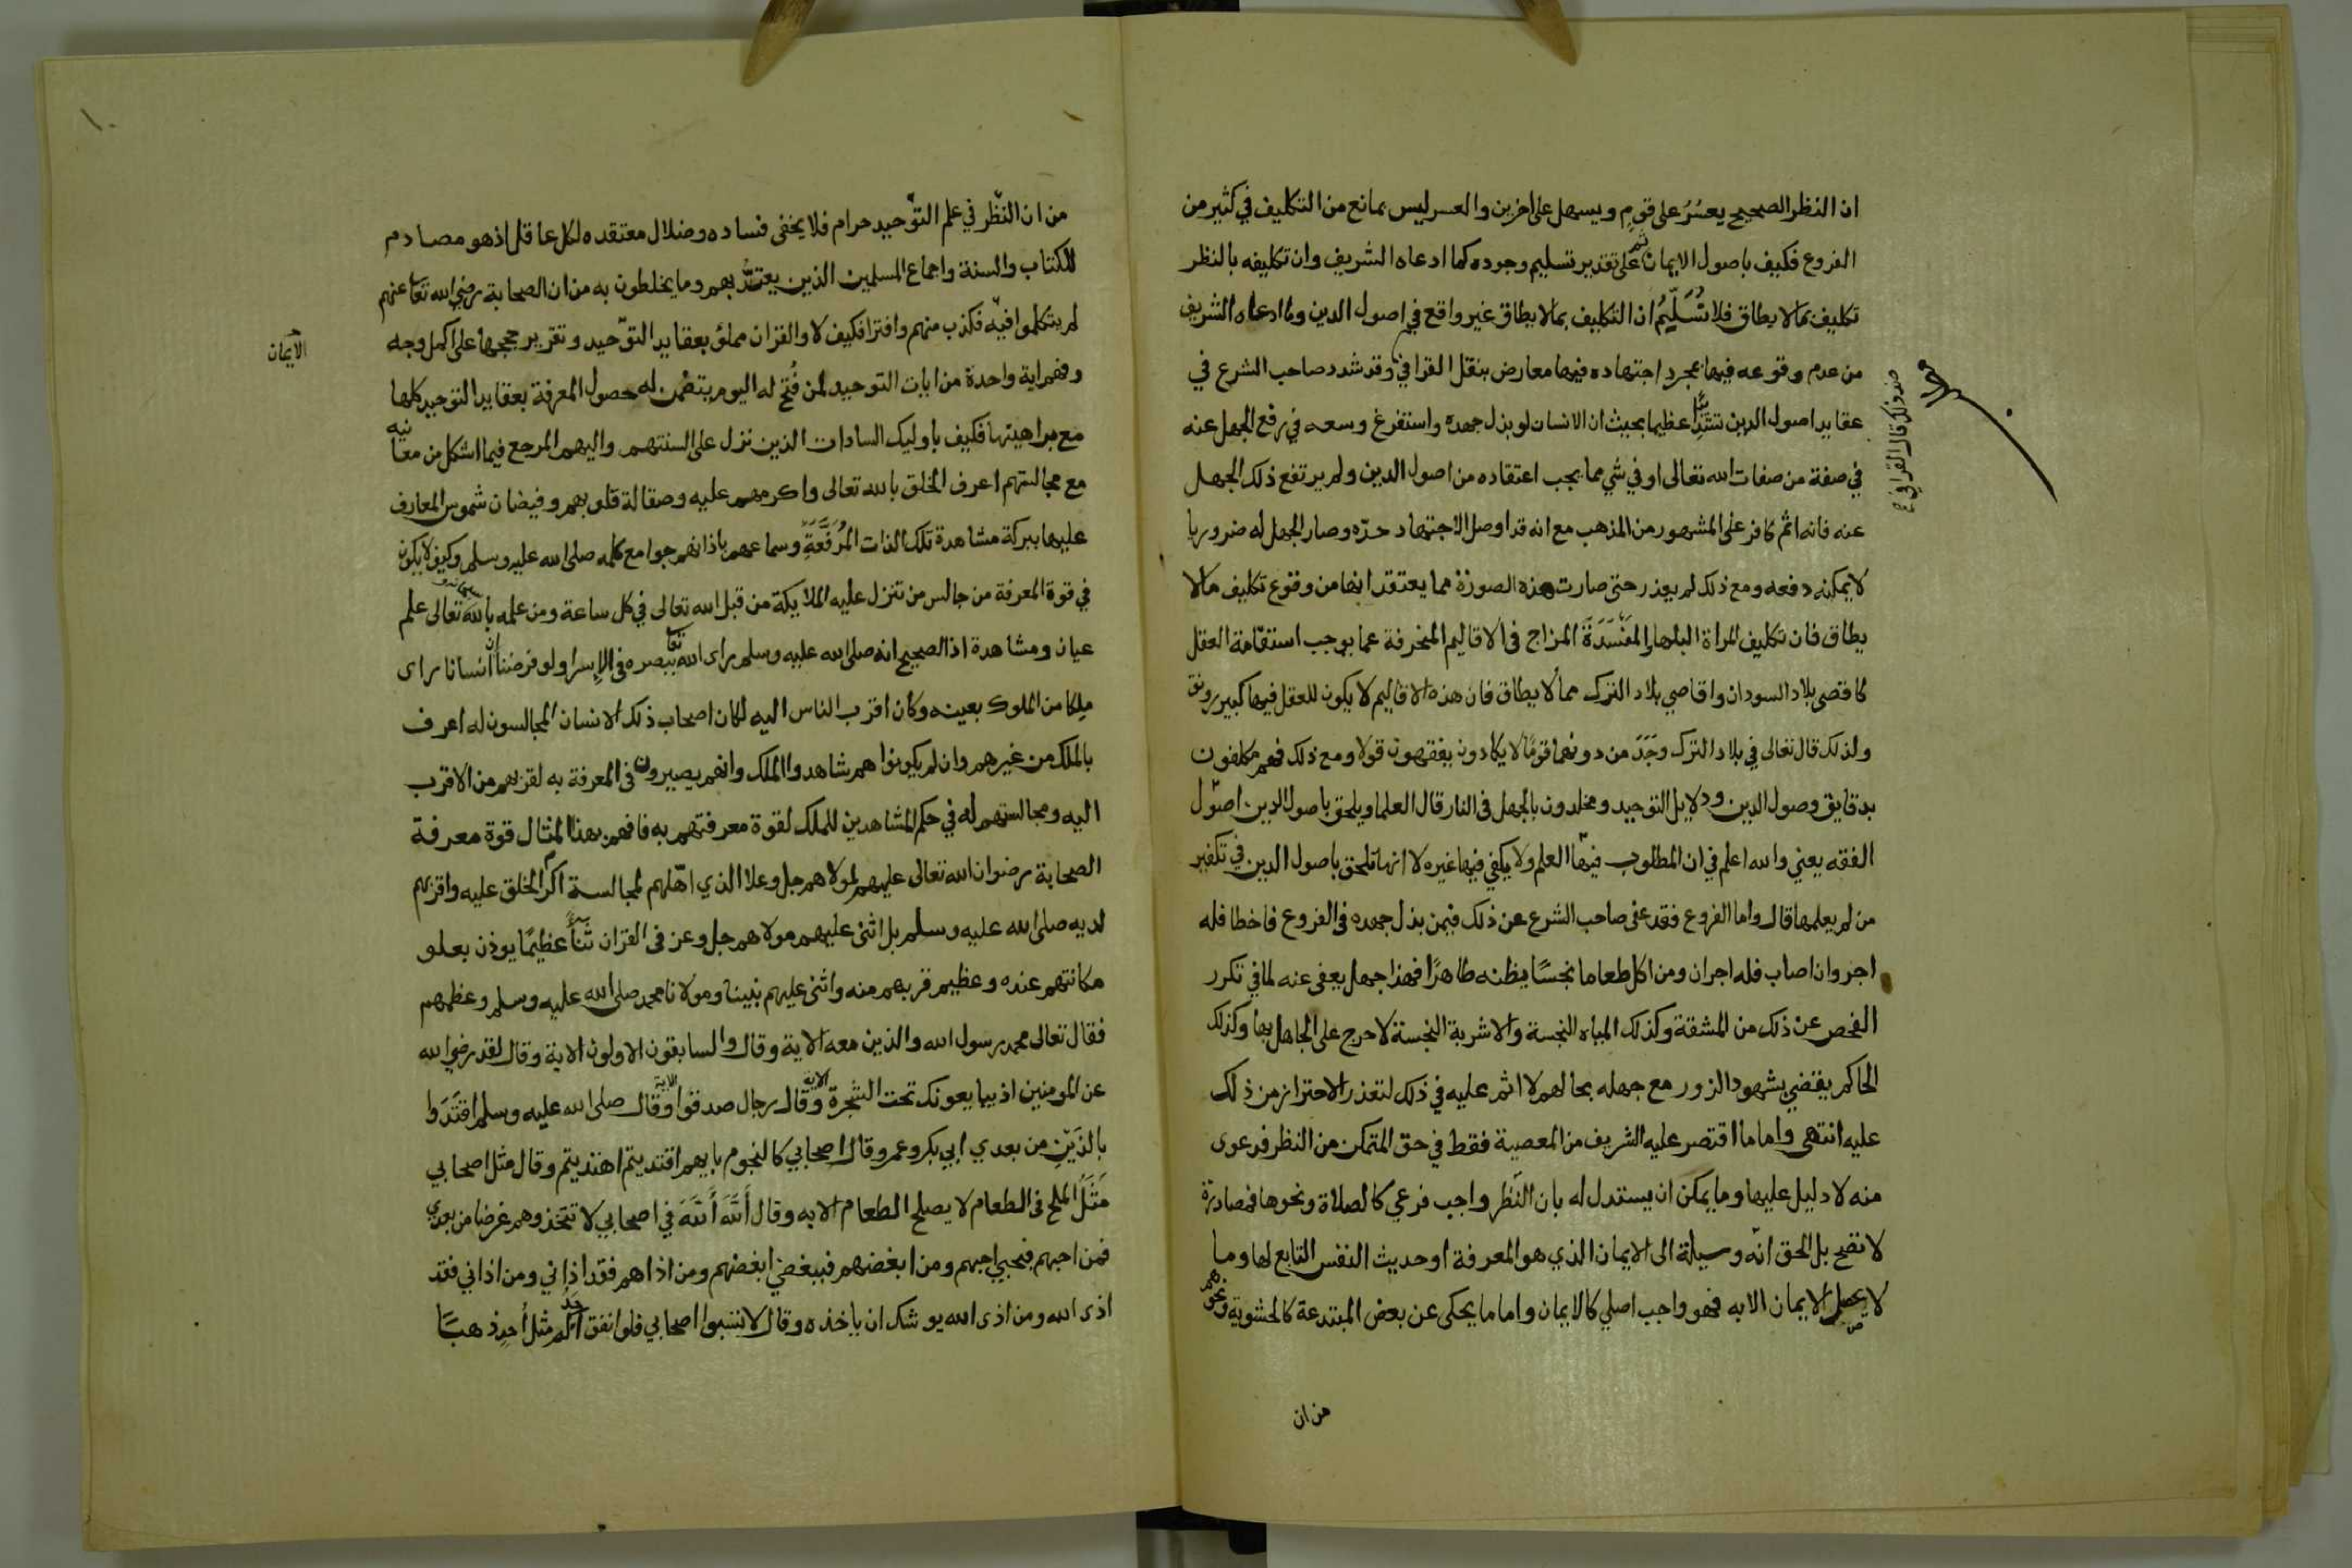 ان النظر الصحيح يعسُرُ على قومٍ ويسهل على اخرين والعسر ليس بمانع من التكليف في كثير من
الفروع فكيف باصول الايمان ثم على تقدير تسليم وجوده كما ادعاه الشريف وان تكليفه بالنظر
تكليف بمالا يطاق فلا نُسَلِّمُ ان التكليف بمالا يطاق غير واقع في اصول الدين وما ادعاه الشريف
من عدم وقوعه فيها بمجرد اجتهاده فيها معارض بنقل القرافي وقد شدد صاحب الشرع في
عقايد اصول الدين تشديدا عظيما بحيث ان الانسان لو بذل جهده واستفرغ وسعه في رفع الجهل عنه
في صفة من صفات الله تعالى او في شي مما يجب اعتقاده من اصول الدين ولم يرتفع ذلك الجهل
عنه فانه اثم كافر على المشهور من المذهب مع انه قد اوصل الاجتهاد حدّه وصار الجهل له ضروريا
لا يمكنه دفعه ومع ذلك لم يعذر حتى صارت هذه الصورة مما يعتقد انها من وقوع تكليف مالا
يطاق فان تكليف المراة البلها المفسدة المزاج فى الاقاليم المنحرفة عما يوجب استقامة العقل
كاقصى بلاد السودان واقاصي بلاد الترك مما لا يطاق فان هذه الاقاليم لا يكون للعقل فيها كبير رونق
ولذلك قال تعالى في بلاد الترك وجَدَ من دونهما قومًا لا يكادون يفقهون قولا ومع ذلك فهم مكلفون
بدقايق وصول الدين ودلايل التوحيد ومخلدون بالجهل فى النار قال العلما ويلحق باصول الدين اصول
الفقه يعني والله اعلم في ان المطلوب فيها العلم ولا يكفي فيها غيره لا انها تلحق باصول الدين في تكفير
من لم يعلمها قال واما الفروع فقد عفى صاحب الشرع عن ذلك فيمن بذل جهده فى الفروع فاخطا فله
اجر وان اصاب فله اجران ومن اكل طعاما نجسًا يظنه طاهرًا فهذا جهل يعفى عنه لما في تكرر
الفحص عن ذلك من المشقة وكذلك المياه النجسة والاشربة النجسة لا حرج على الجاهل بها وكذلك
الحاكم يقضي بشهود الزور مع جهله بحالهم لا اثم عليه في ذلك لتعذر الاحتراز من ذلك
عليه انتهى واما ما اقتصر عليه الشريف من المعصية فقط في حق المتمكن من النظر فدعوى
منه لا دليل عليها وما يمكن ان يستدل له بان النّظر واجب فرعي كالصلاة ونحوها فمصادرة
لا تصح بل الحق انّه وسيلة الى الايمان الذي هو المعرفة او حديث النفس التابع لها وما
لا يحصل الايمان الا به فهو واجب اصلي كالايمان واما ما يحكى عن بعض المبتدعة كالحشوية ونحوهم
من ان
ضد ذلك قال القرافي
من ان النّظر في علم التوّحيد حرام فلا يخفى فساده وضلال معتقده لكل عاقل اذ هو مصادم
للكتاب والسنة واجماع المسلمين الذين يعتدُّ بهم وما يخلطون به من ان الصحابة رضي الله تعا عنهم
لم يتكلموا فيه فكذب منهم وافترا فكيف لا والقران مملؤ بعقايد التوّحيد وتقرير حججها على اكمل وجه
وفهم اية واحدة من ايات التوحيد لمن فُتح له اليوم يتضمن له حصول المعرفة بعقايد التوحيد كلها
مع براهينها فكيف باوليك السادات الذين نزل على السنتهم واليهم المرجع فيما اشكل من معانيه
مع مجالستهم اعرف الخلق بالله تعالى واكرمهم عليه وصقالة قلوبهم وفيضان شموس المعارف
عليها ببركة مشاهدة تلك الذات المُرَفَّعَةِ وسماعهم باذانهم جوامع كلمه صلى الله عليه وسلم وكيف لا يكون
في قوة المعرفة من جالس من تنزل عليه الملايكة من قبل الله تعالى في كل ساعة ومن علمه بالله تعالى علم
عيان ومشاهدة اذ الصحيح انه صلى الله عليه وسلم راى الله تعا ببصره فى الإسرا ولو فرضنا ان انسانا راى
ملكا من الملوك بعينه وكان اقرب الناس اليه لكان اصحاب ذلك الانسان المجالسون له اعرف
بالملك من غيرهم وان لم يكونوا هم شاهدوا الملك وانهم يصيرون فى المعرفة به لقربهم من الاقرب
اليه ومجالستهم له في حكم المشاهدين للملك لقوة معرفتهم به فافهم بهذا المثال قوة معرفة
الصحابة رضوان الله تعالى عليهم لمولاهم جل وعلا الذي اهّلهم لمجالسة اكرم الخلق عليه واقربهم
لديه صلى الله عليه وسلم بل اثنى عليهم مولاهم جل وعز فى القران ثناًء عظيمًا يوذن بعلو
مكانتهم عنده وعظيم قربهم منه واثنى عليهم نبينا ومولانا محمد صلى الله عليه وسلم وعظمهم
فقال تعالى محمد رسول الله والذين معه الاية وقال والسابقون الاولون الاية وقال لقد رضي الله
عن المومنين اذ يبايعونك تحت الشجرة الاية وقال رجال صدقوا الاية وقال صلى الله عليه وسلم اقتَدَوا
بالذَيْنِ من بعدي ابي بكر وعمر وقال اصحابي كالنجوم بايهم اقتديتم اهتديتم وقال مثل اصحابي
مَثَلُ الملح فى الطعام لا يصلح الطعام الا به وقال أَللَّهَ أَللَّهَ في اصحابي لا تتخذوهم غرضا من بعدي
فمن احبهم فبحبي احبهم ومن ابغضهم فببغضي ابغضهم ومن اذاهم فقد اذاني ومن اذاني فقد
اذى الله ومن اذى الله يوشك ان ياخذه وقال لا تسبوا اصحابي فلو انفق احدكم مثل أُحدٍ ذهبًا
الايمان
١٠